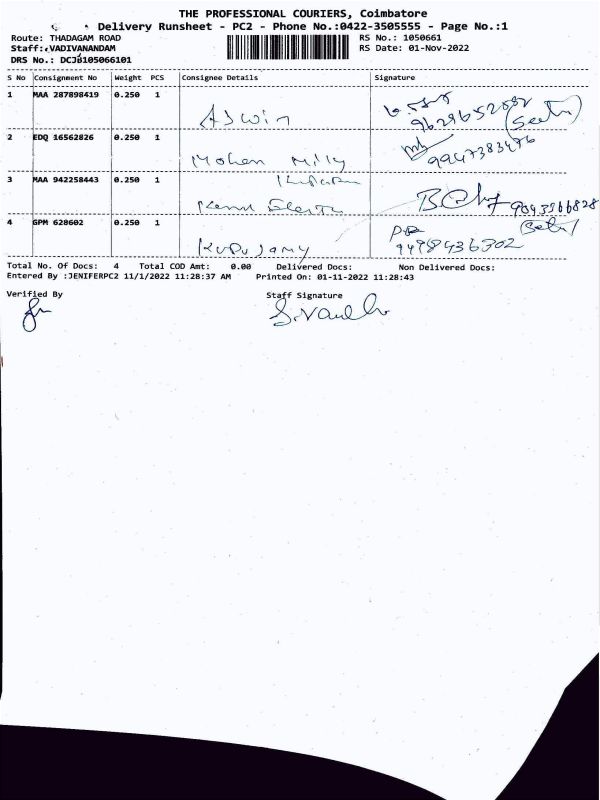 THE PROFESSIONAL COURIERS, Coimbatore
Delivery Runsheet - PC2 - Phone No.:0422-3505555 - Page No.:1
Route: THADAGAM ROAD RS No.: 1050661
Staff: VADIVANANDAM RS Date: 01-Nov-2022
DRS No.: DCJB105066101
S No Consignment No Weight PCS Consignee Details Signature
1 MAA 287898419 0.250 1
Aswin
(Seetu)
2 EDQ 16562826 0.250 1
Mohan Milly 9947383476
3 MAA 942258443 0.250 1
4 GPM 628602 0.250 1
KUPUSAMY
Total No. Of Docs: 4 Total COD Amt: 0.00 Delivered Docs: Non Delivered Docs:
Entered By :JENIFERPC2 11/1/2022 11:28:37 AM Printed On: 01-11-2022 11:28:43
Verified By Staff Signature